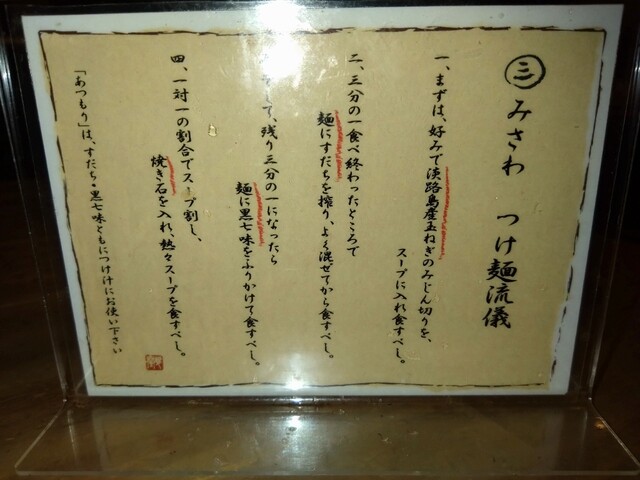 三 みさわ つけ麺流儀
一、まずは、好みで淡路島産玉ねぎのみじん切りを、
スープに入れ食すべし。
二、三分の一食べ終わったところで
麺にすだちを搾り、よく混ぜてから食すべし。
して、残り三分の一になったら
麺に黒七味をふりかけて食すべし。
四、一対一の割合でスープ割し、
焼き石を入れ、熱々スープを食すべし。
「あつもり」は、すだち・黒七味ともにつけ汁にお使い下さい